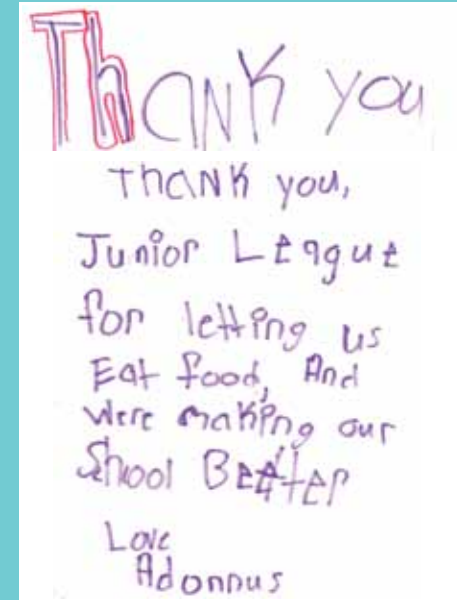 Thank you
Thank you,
Junior League
for letting us
Eat food, And
were making our
Shool Better
Love
Adonnus